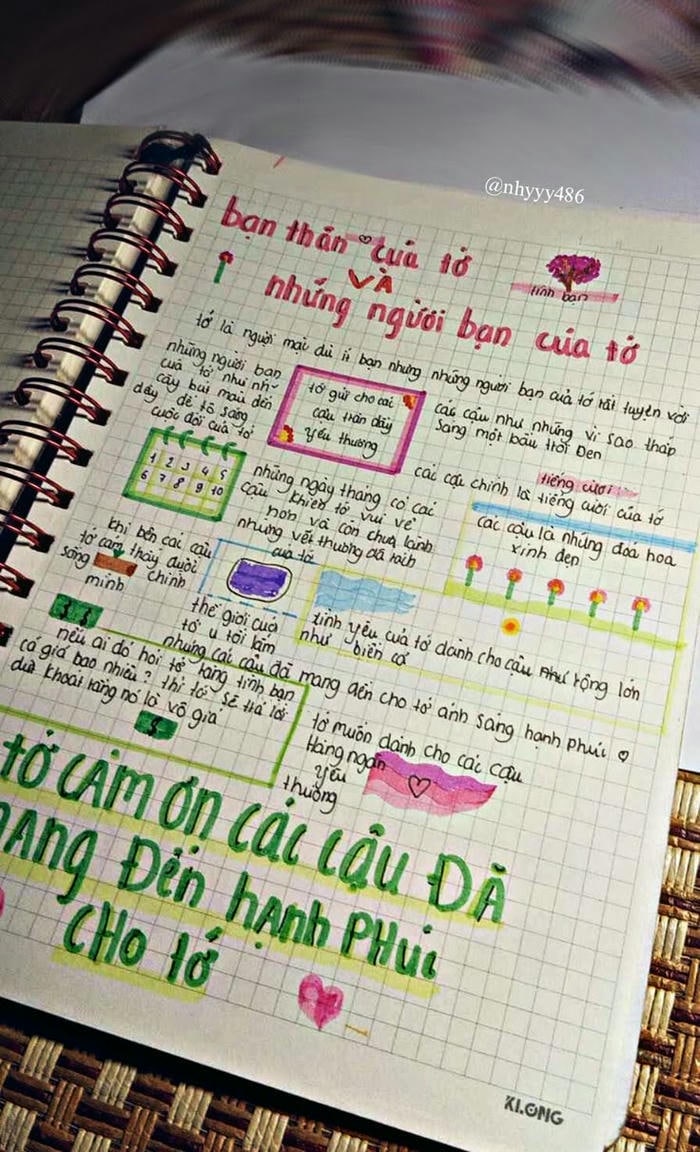 @nhyyy486
bạn thân của tớ
VÀ
những người bạn của tớ
tình bạn
tớ là người mặc dù ít bạn nhưng những người bạn của tớ rất tuyệt vời
những người bạn
của tớ như
cây bút màu đến
đây để tô sáng
cuộc đời của tớ
tớ gửi cho các
cậu trăn đầy
yêu thương
các cậu như những vì sao thắp
sáng một bầu trời đen
1 2 3 4 5
6 7 8 9 10
những ngày tháng có các
cậu khiến tớ vui vẻ
hơn và còn chữa lành
những vết thương đã rách
của tớ
các cậu chính là tiếng cười của tớ
tiếng cười
các cậu là những đoá hoa
xinh đẹp
khi bên các cậu
tớ cảm thấy được
sống chính
mình
thế giới của
tớ u tối lắm
nhưng các cậu đã mang đến cho tớ ánh sáng hạnh phúc
tình yêu của tớ dành cho cậu như rộng lớn
như biển cả
nếu ai đó hỏi tớ rằng tình bạn
có giá bao nhiêu? thì tớ sẽ trả lời
dứt khoát rằng nó là vô giá
$ $
$
tớ muốn dành cho các cậu
hàng ngàn
yêu
thương
tớ cảm ơn các cậu ĐÃ
mANG ĐẾN hẠnh PHúc
CHO tớ
KLONG